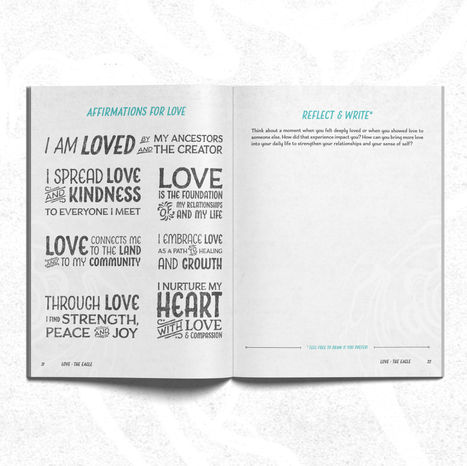 AFFIRMATIONS FOR LOVE
I AM LOVED BY MY ANCESTORS
AND THE CREATOR
I SPREAD LOVE
AND KINDNESS
TO EVERYONE I MEET
LOVE
IS THE FOUNDATION
OF MY RELATIONSHIPS
AND MY LIFE
LOVE CONNECTS ME
TO THE LAND
AND TO MY COMMUNITY
I EMBRACE LOVE
AS A PATH TO HEALING
AND GROWTH
THROUGH LOVE
I FIND STRENGTH,
PEACE AND JOY
I NURTURE MY
HEART
WITH LOVE
& COMPASSION
LOVE - THE EAGLE
REFLECT & WRITE*
Think about a moment when you felt deeply loved or when you showed love to
someone else. How did that experience impact you? How can you bring more
love into your daily life to strengthen your relationships and your sense of self?
* FEEL FREE TO DRAW IF YOU PREFER!
LOVE - THE EAGLE